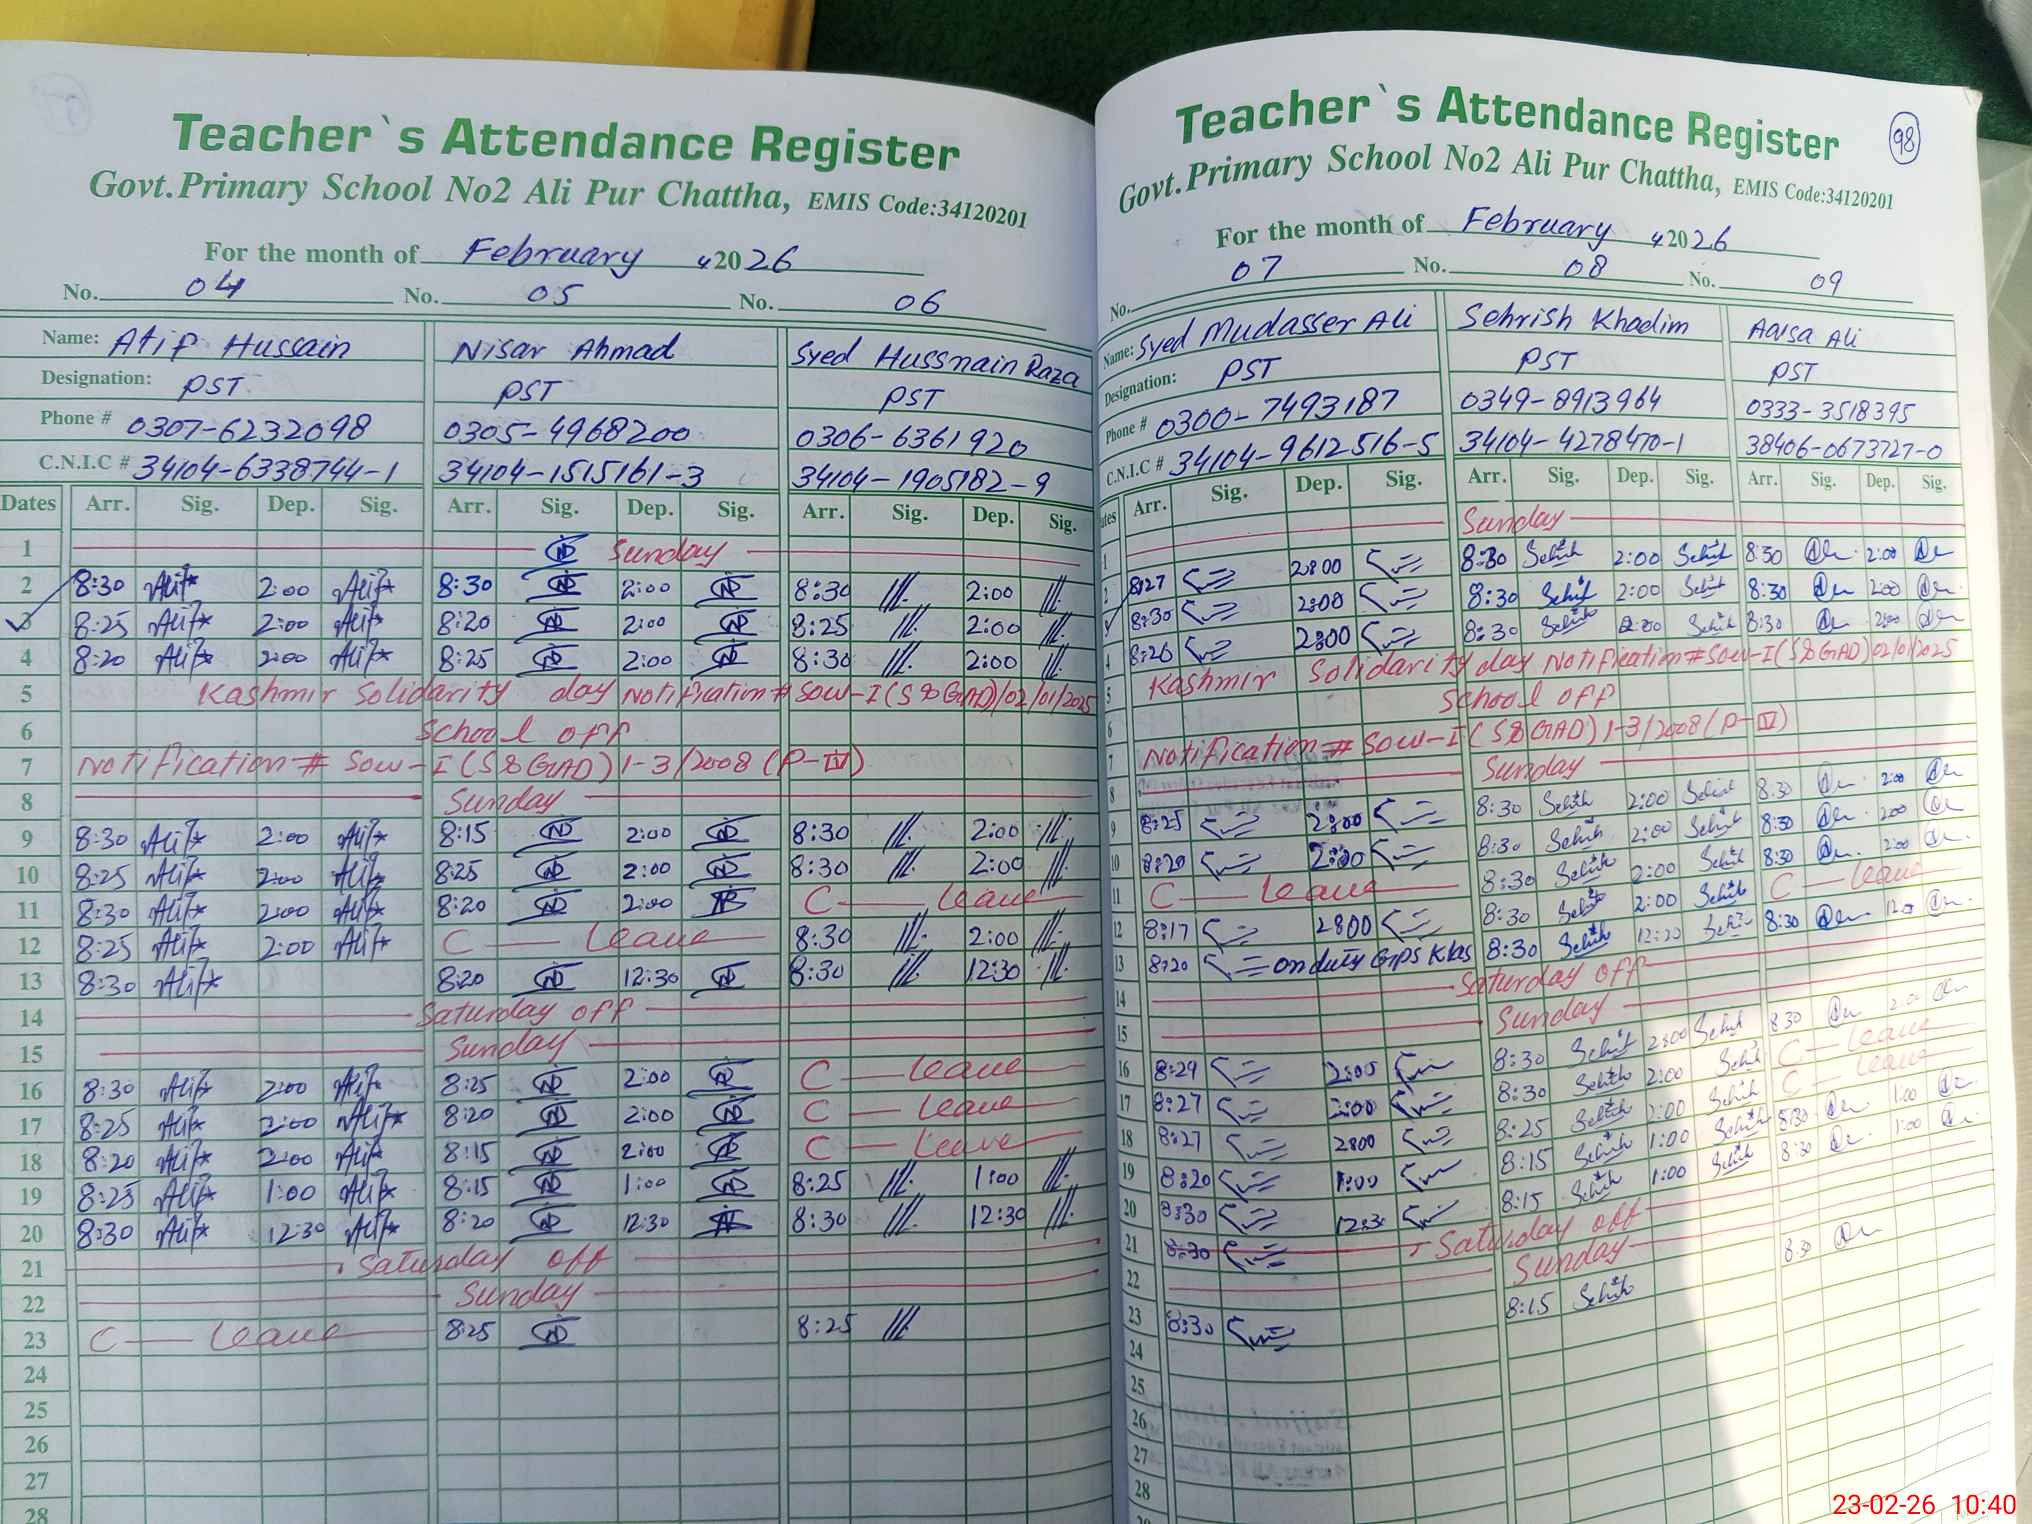 Teacher`s Attendance Register
Govt.Primary School No2 Ali Pur Chattha, EMIS Code:34120201
For the month of February 2026
No. 04 No. 05 No. 06
Name: Atif Hussain Nisar Ahmad Syed Hussnain Raza
Designation: PST PST PST
Phone # 0307-6232098 0305-4968200 0306-6361920
C.N.I.C # 34104-6338744-1 34104-1515161-3 34104-1905182-9
Dates Arr. Sig. Dep. Sig. Arr. Sig. Dep. Sig. Arr. Sig. Dep. Sig.
1 Sunday
2 8:30 Atif 2:00 Atif 8:30 2:00 8:30 2:00
3 8:25 Atif 2:00 Atif 8:20 2:00 8:25 2:00
4 8:20 Atif 2:00 Atif 8:25 2:00 8:30 2:00
5 Kashmir Solidarity day Notification # SOW-I(S&GAD)/02/01/2025
6 School off
7 Notification # SOW-I(S&GAD)1-3/2008(P-IV)
8 Sunday
9 8:30 Atif 2:00 Atif 8:15 2:00 8:30 2:00
10 8:25 Atif 2:00 Atif 8:25 2:00 8:30 2:00
11 8:30 Atif 2:00 Atif 8:20 2:00 C — Leave
12 8:25 Atif 2:00 Atif C — Leave 8:30 2:00
13 8:30 Atif 8:20 12:30 8:30 12:30
14 Saturday off
15 Sunday
16 8:30 Atif 2:00 Atif 8:25 2:00 C — Leave
17 8:25 Atif 2:00 Atif 8:20 2:00 C — Leave
18 8:20 Atif 2:00 Atif 8:15 2:00 C — Leave
19 8:25 Atif 1:00 Atif 8:15 1:00 8:25 1:00
20 8:30 Atif 12:30 Atif 8:20 12:30 8:30 12:30
21 Saturday off
22 Sunday
23 C — Leave 8:25 8:25
24
25
26
27
28
98
Teacher`s Attendance Register
Govt.Primary School No2 Ali Pur Chattha, EMIS Code:34120201
For the month of February 2026
No. 07 No. 08 No. 09
Name: Syed Mudasser Ali Sehrish Khadim Aqsa Ali
Designation: PST PST PST
Phone # 0300-7493187 0349-8913964 0333-3518395
C.N.I.C # 34104-9612516-5 34104-4278470-1 38406-0673727-0
Dates Arr. Sig. Dep. Sig. Arr. Sig. Dep. Sig. Arr. Sig. Dep. Sig.
1 Sunday
2 8:27 2:00 8:30 Sehrish 2:00 Sehrish 8:30 2:00
3 8:30 2:00 8:30 Sehrish 2:00 Sehrish 8:30 2:00
4 8:26 2:00 8:30 Sehrish 2:00 Sehrish 8:30 2:00
5 Kashmir Solidarity day Notification # SOW-I(S&GAD)02/01/2025
6 School off
7 Notification # SOW-I(S&GAD)1-3/2008(P-IV)
8 Sunday
9 8:25 2:00 8:30 Sehrish 2:00 Sehrish 8:30 2:00
10 8:20 2:00 8:30 Sehrish 2:00 Sehrish 8:30 2:00
11 C — Leave 8:30 Sehrish 2:00 Sehrish 8:30 2:00
12 8:17 2:00 8:30 Sehrish 2:00 Sehrish C — Leave
13 8:20 on duty GPS Klas 8:30 Sehrish 12:30 Sehrish 8:30
14 Saturday off
15 Sunday
16 8:29 2:00 8:30 Sehrish 2:00 Sehrish 8:30 2:00
17 8:27 2:00 8:30 Sehrish 2:00 Sehrish C — Leave
18 8:27 2:00 8:25 Sehrish 2:00 Sehrish C — Leave
19 8:20 1:00 8:15 Sehrish 1:00 Sehrish 8:30 1:00
20 8:30 12:30 8:15 Sehrish 1:00 Sehrish 8:30 1:00
21 8:30 Saturday off
22 Sunday
23 8:30 8:15 Sehrish 8:30
24
25
26
27
28
23-02-26 10:40